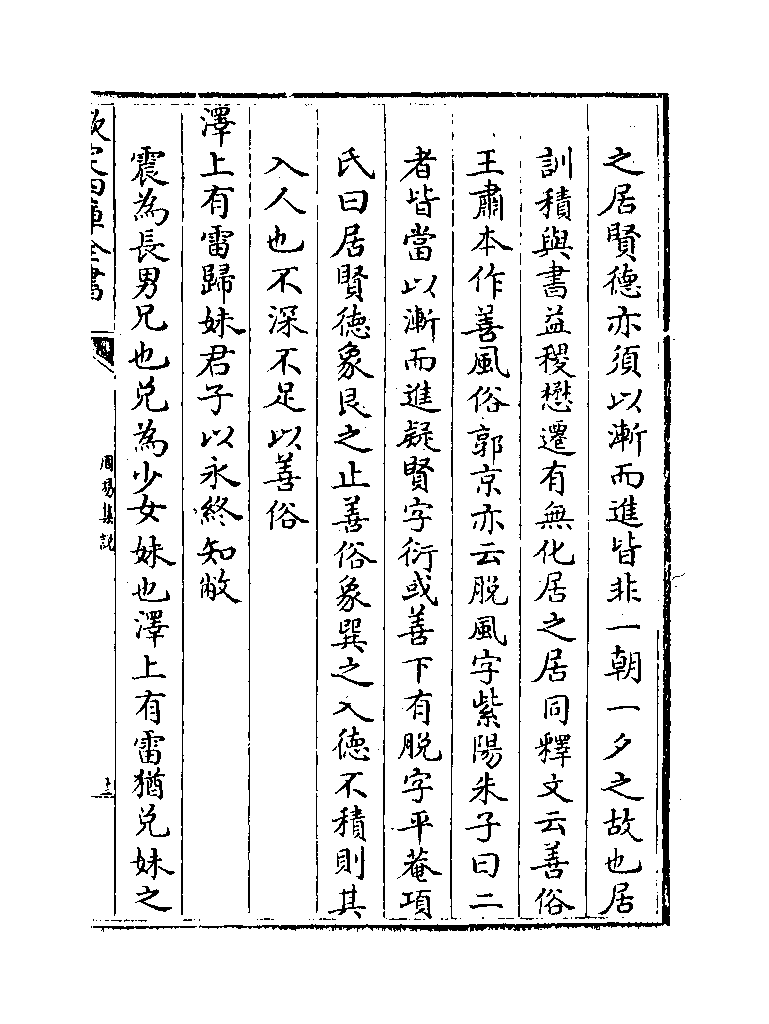 之居賢德亦須以漸而進皆非一朝一夕之故也居
訓積與書益稷懋遷有無化居之居同釋文云善俗
王肅本作善風俗郭京亦云脱風字紫陽朱子曰二
者皆當以漸而進疑賢字衍或善下有脱字平菴項
氏曰居賢德象艮之止善俗象巽之入德不積則其
入人也不深不足以善俗
澤上有雷歸妹君子以永終知敝
震為長男兄也兑為少女妹也澤上有雷猶兑妹之
欽定四庫全書
周易集説
十二